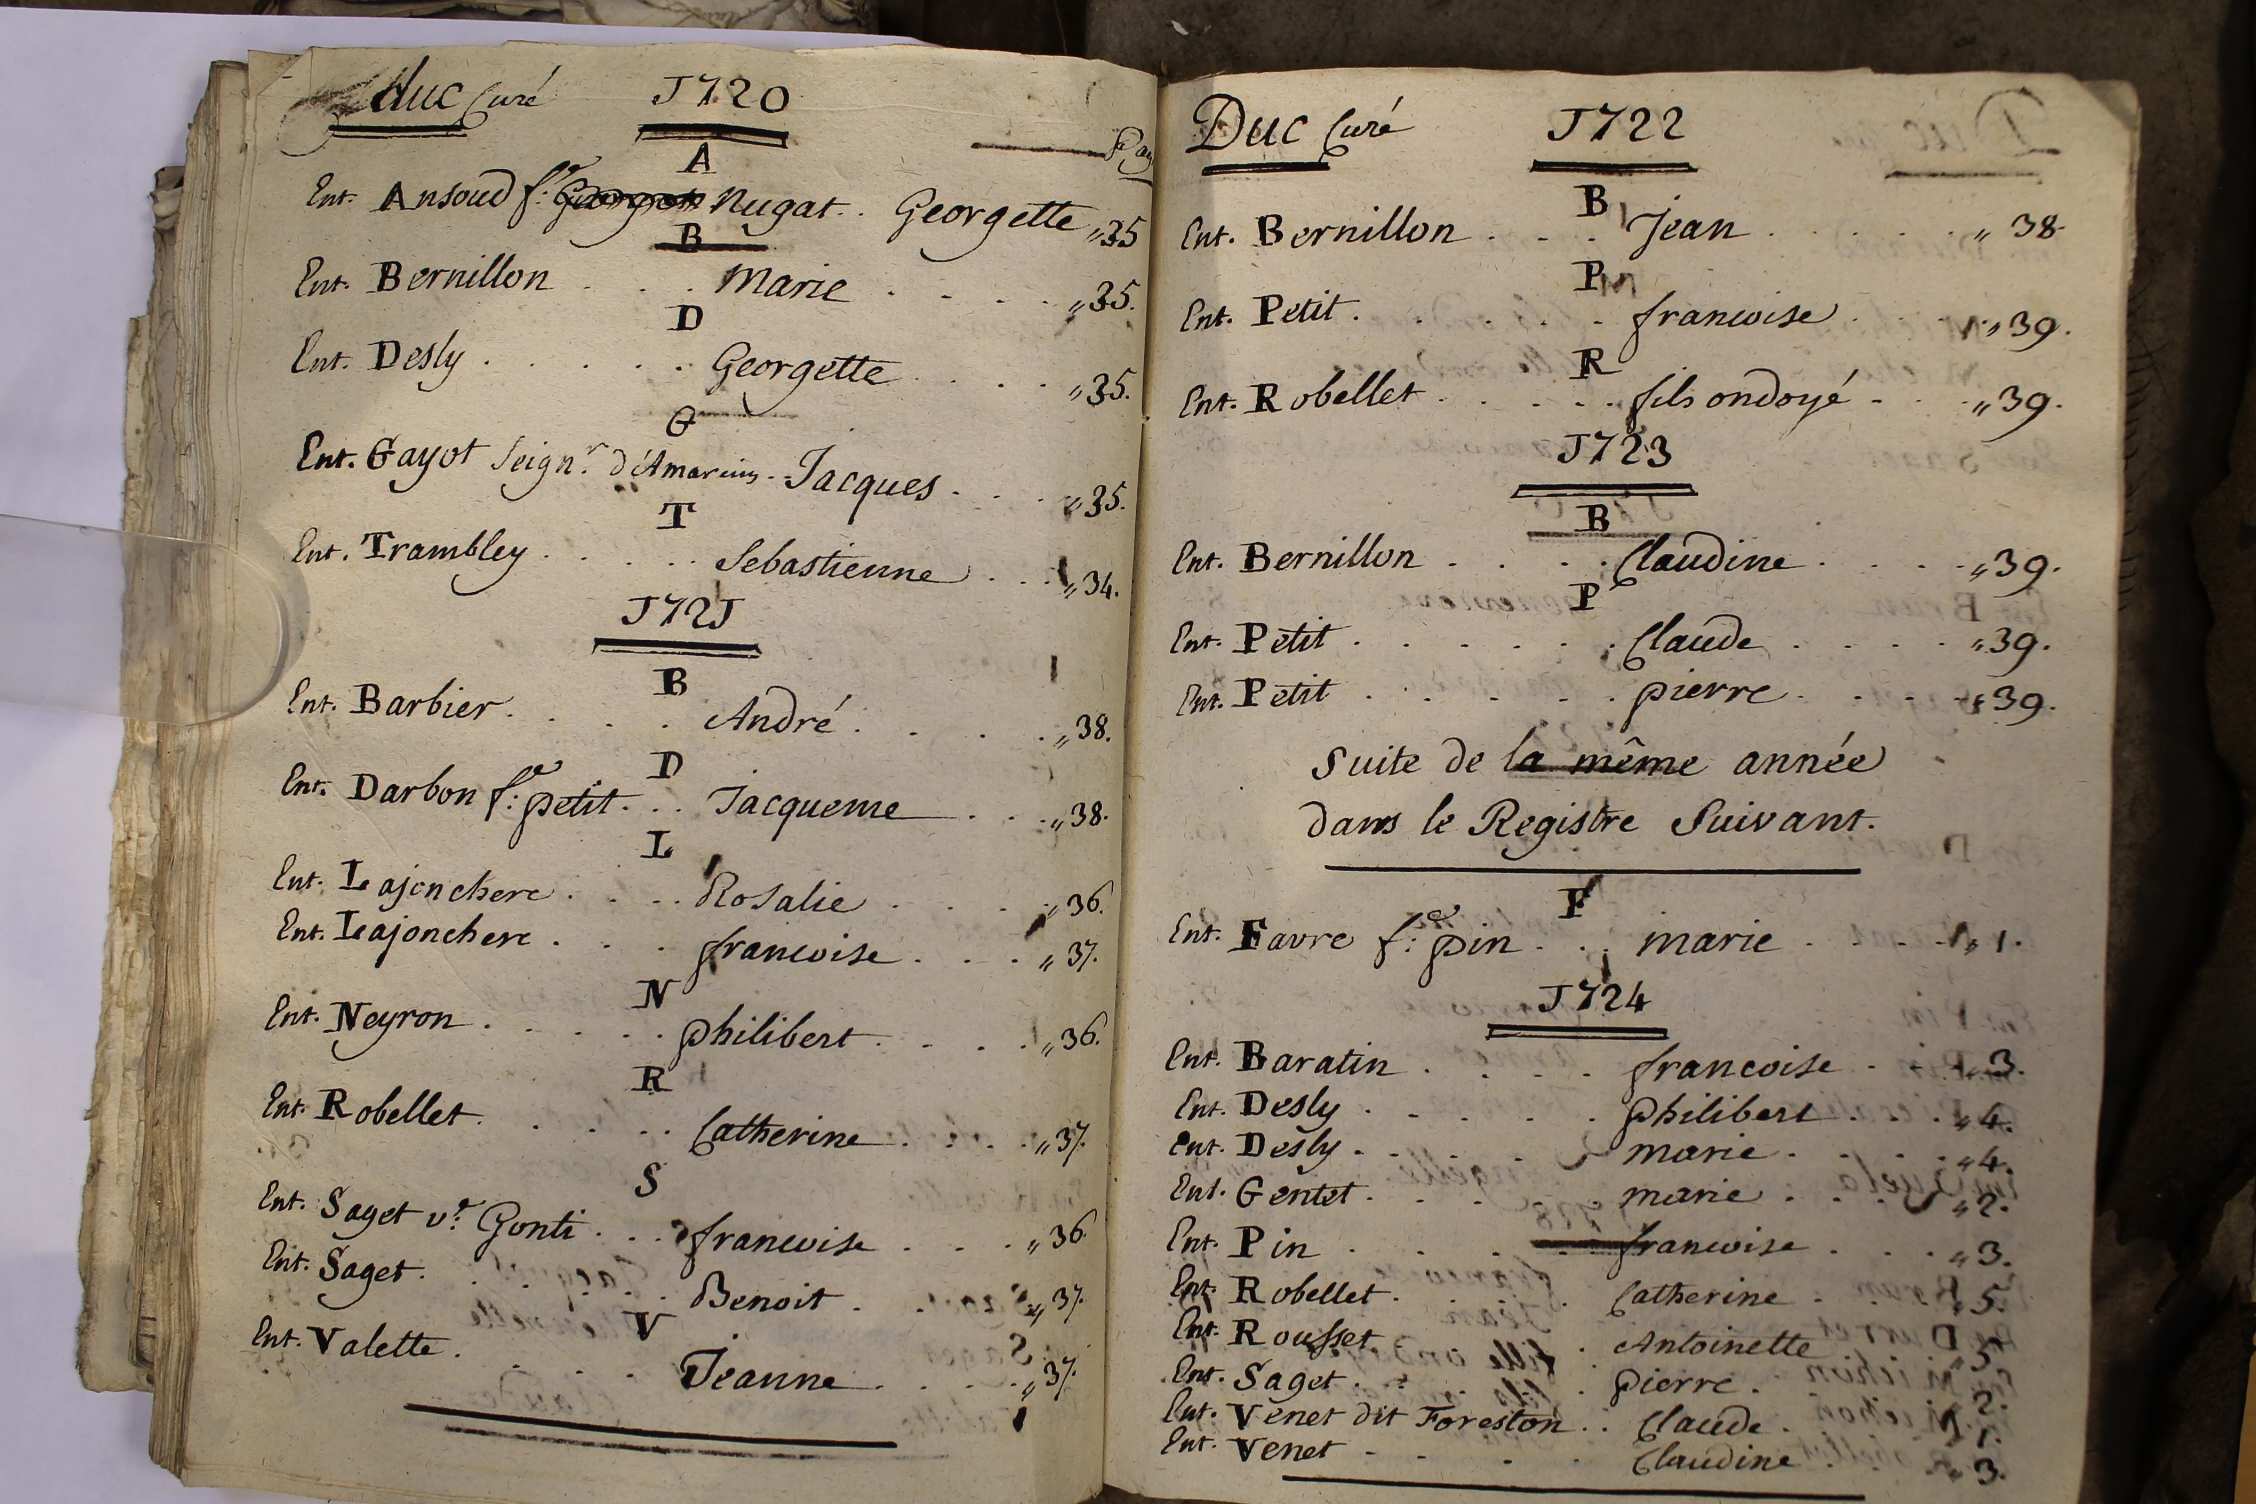 Duc Curé 1720
Pag
A
Ent. Ansoud f.e Nugat.. Georgette „35
B
Ent. Bernillon . . . Marie . . . . „35.
D
Ent. Desly . . . . . Georgette . . . „35.
G
Ent. Gayot Seign.r d'Amarins.. Jacques . . . „35.
T
Ent. Trambley . . . . . Sebastienne . . . „34.
1721
B
Ent. Barbier . . . . André . . . . „38.
D
Ent. Darbon f.e petit. . . Jacqueme . . . „38.
L
Ent. Lajonchere . . . . Rosalie . . . . „36.
Ent. Lajonchere . . . . francoise . . . „37.
N
Ent. Neyron . . . . . philibert . . . . „36.
R
Ent. Robellet . . . . . Catherine . . . . „37.
S
Ent. Saget v.e Gonti . . . francoise . . . „36.
Ent. Saget . . . . . Benoit . . . . „37.
V
Ent. Valette . . . . . Jeanne . . . . . „37.
Duc Curé 1722
B
Ent. Bernillon . . . . Jean . . . . . „ 38.
P
Ent. Petit . . . . . . francoise . . . . „39.
R
Ent. Robellet . . . . . fils ondoyé . . . „39.
1723
B
Ent. Bernillon . . . . Claudine . . . . „39.
P
Ent. Petit . . . . . . Claude . . . . „39.
Ent. Petit . . . . . . pierre . . . . „39.
Suite de la même année
dans le Registre Suivant.
F
Ent. Favre f.e pin . . . marie . . . . „ 1.
1724
Ent. Baratin . . . . francoise . . . „3.
Ent. Desly . . . . . philibert . . . „4.
Ent. Desly . . . . . marie . . . . „4.
Ent. Gentet . . . . marie . . . . „2.
Ent. Pin . . . . . francoise . . . „3.
Ent. Robellet . . . . Catherine . . . „5.
Ent. Rousset . . . Antoinette . . . „5.
Ent. Saget . . . . . pierre . . . 2.
Ent. Venet dit Foreston . . Claude . . . 1.
Ent. Venet . . . . . Claudine . . . „3.